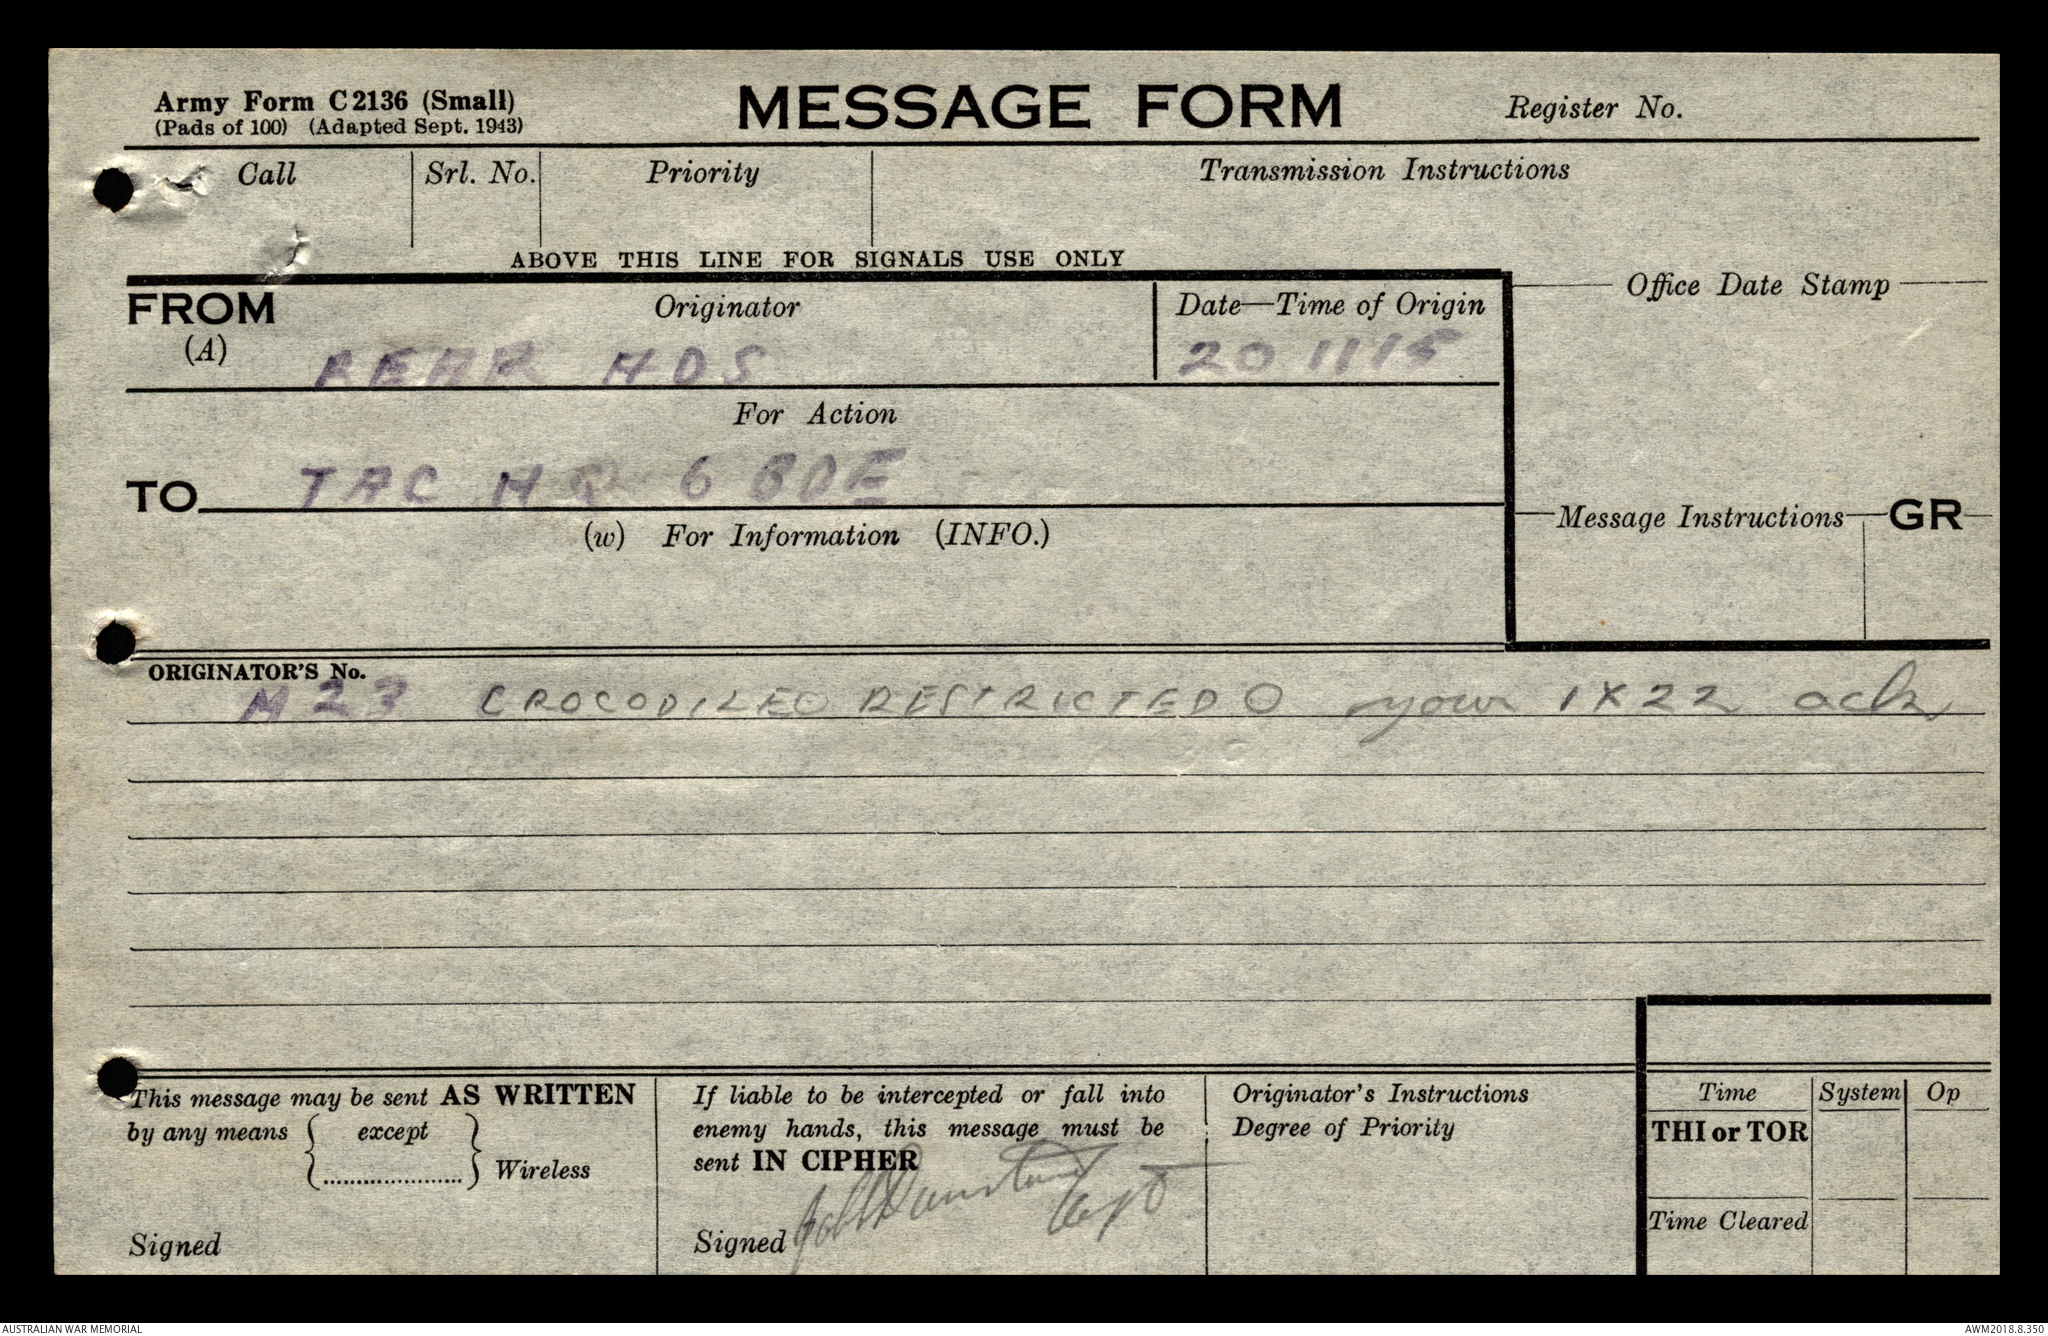 Army Form C2136 (Small)
(Pads of 100) (Adapted Sept. 1943)
MESSAGE FORM
Register No.
Call
Srl. No.
Priority
Transmission Instructions
ABOVE THIS LINE FOR SIGNALS USE ONLY
FROM
(A)
Originator
REAR HDS
Date—Time of Origin
20 1115
Office Date Stamp
For Action
TO
TAC HQ 6 BDE
(w) For Information (INFO.)
Message Instructions
GR
ORIGINATOR'S No.
M23 CROCODILE O RESTRICTED O your 1X22 ack
This message may be sent AS WRITTEN
by any means { except } Wireless
Signed
If liable to be intercepted or fall into
enemy hands, this message must be
sent IN CIPHER
Signed
Capt
Originator's Instructions
Degree of Priority
Time
System
Op
THI or TOR
Time Cleared
AUSTRALIAN WAR MEMORIAL
AWM2018.8.350